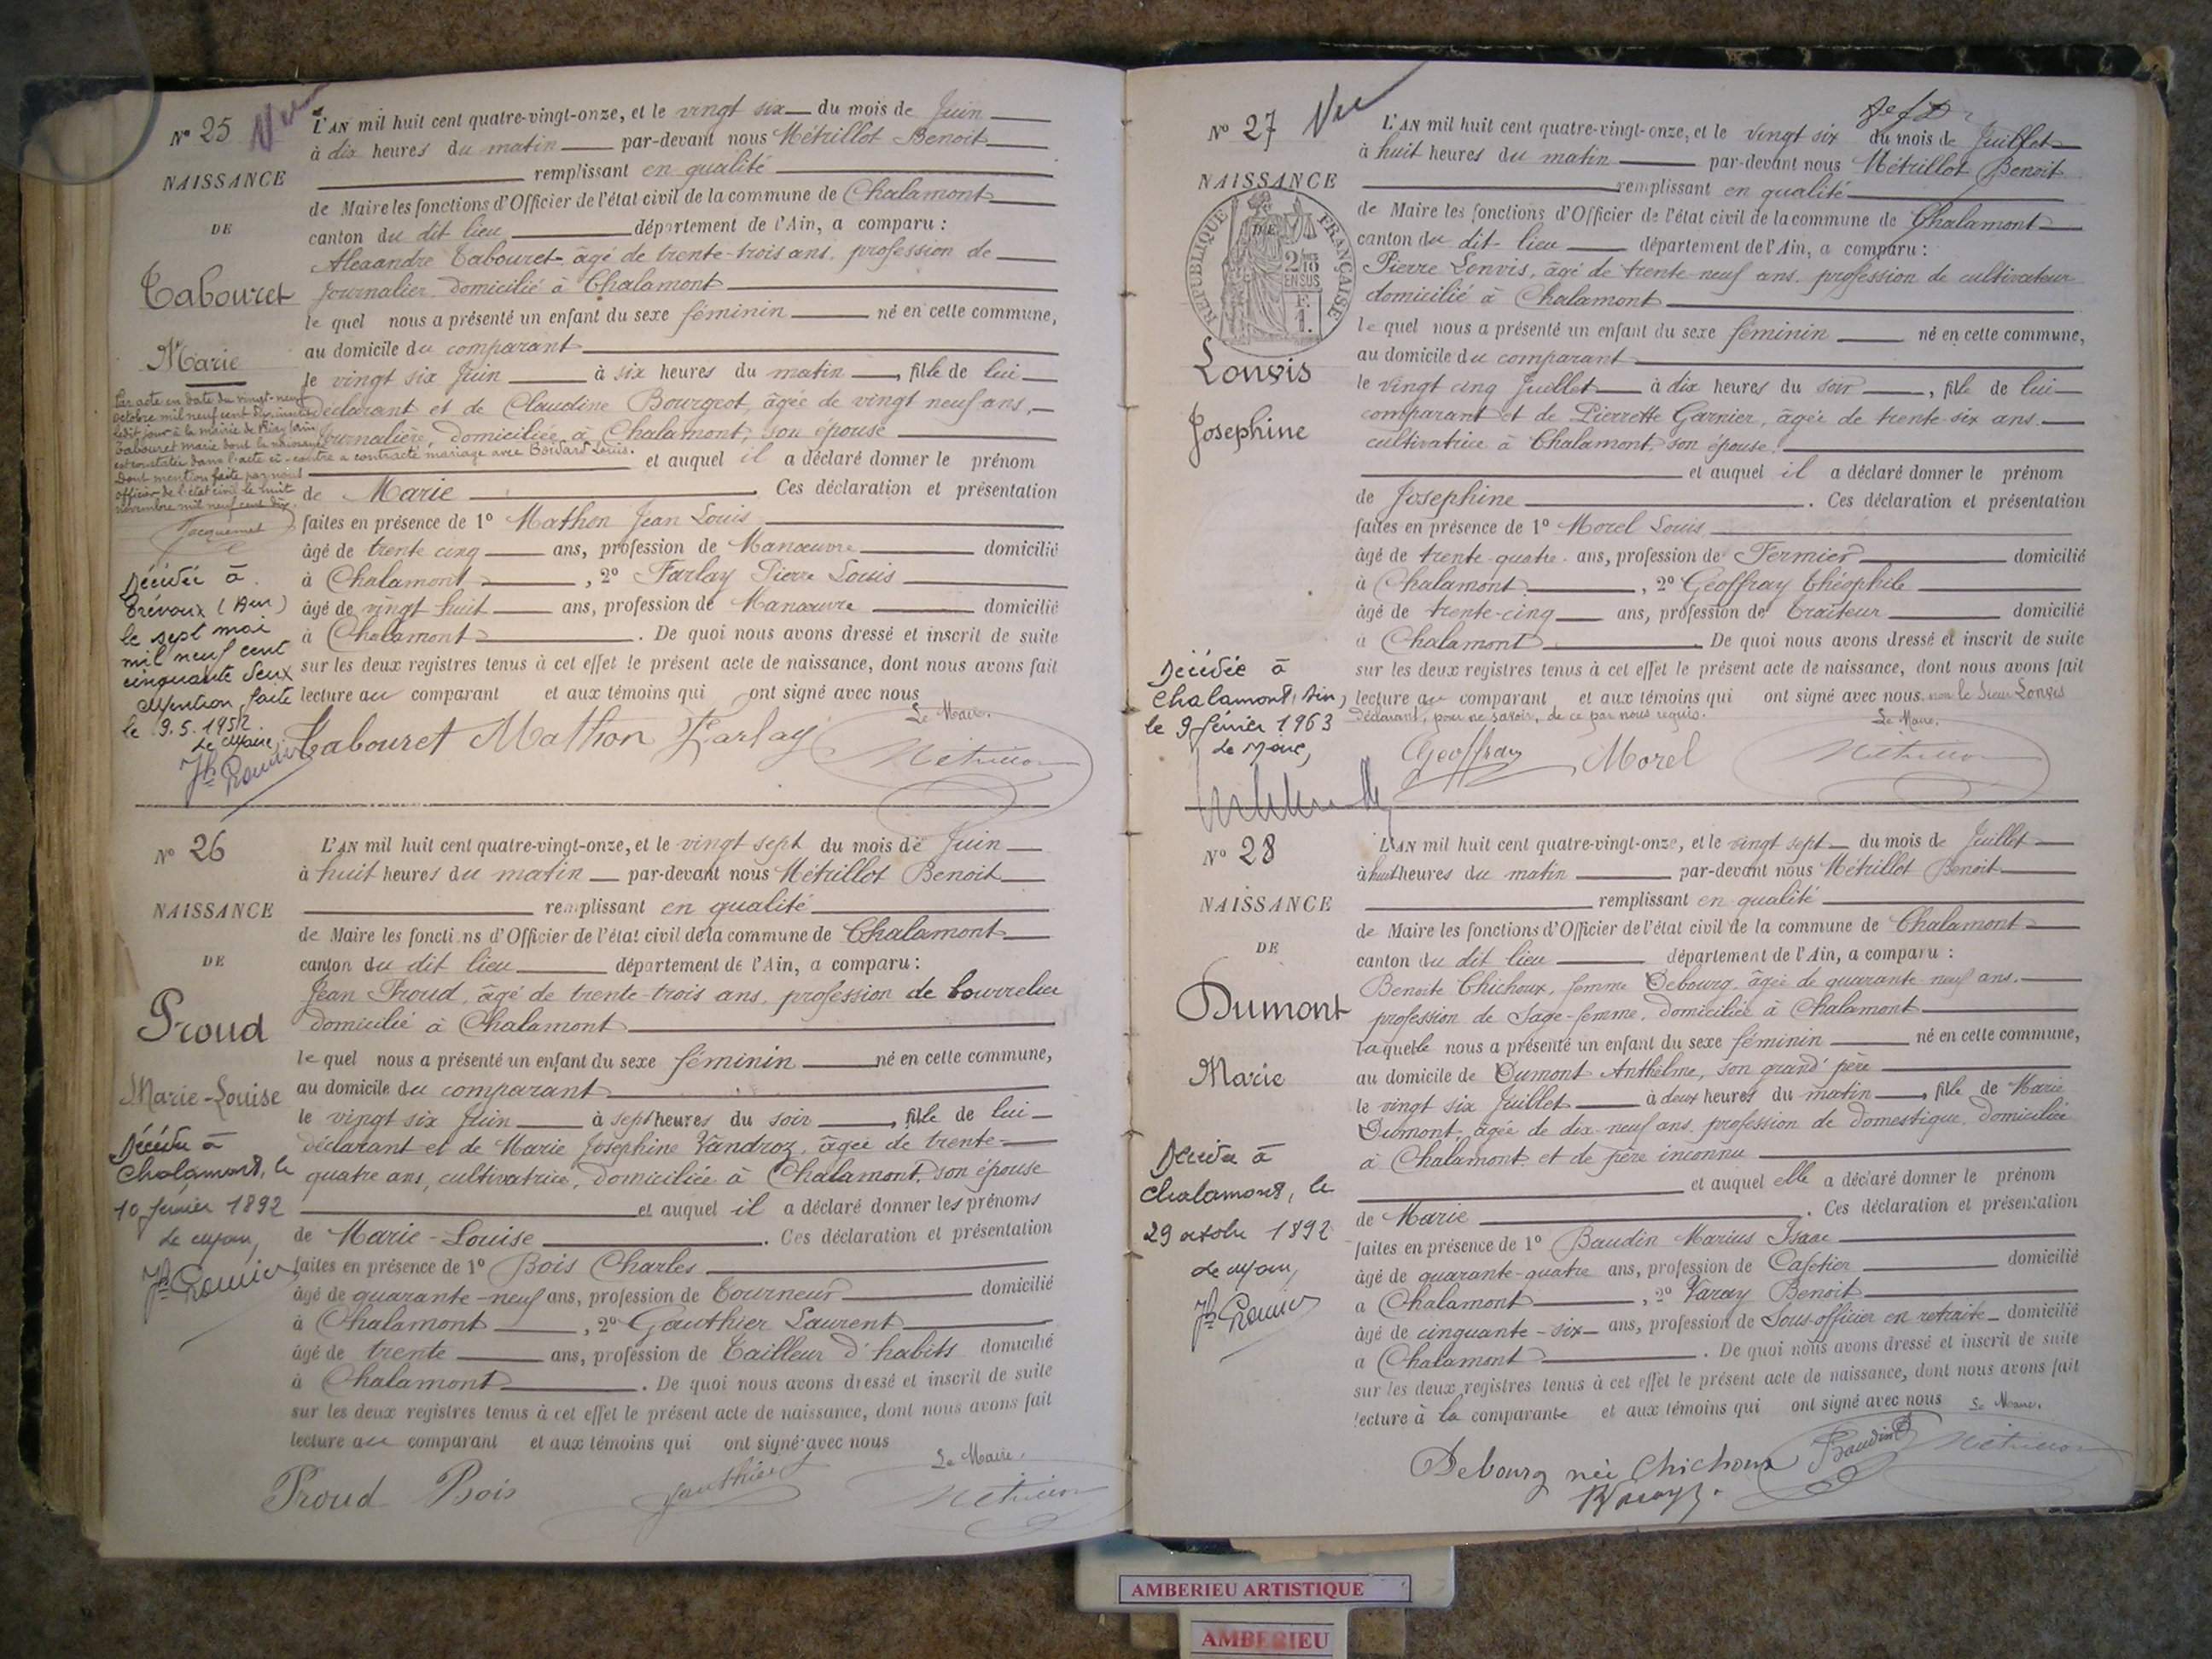 N° 25
Vu
NAISSANCE
DE
Tabouret
Marie
L'AN mil huit cent quatre-vingt-onze, et le vingt six du mois de Juin
à dix heures du matin par-devant nous Métrillot Benoit
remplissant en qualité
de Maire les fonctions d'Officier de l'état civil de la commune de Chalamont
canton du dit lieu département de l'Ain, a comparu :
Alexandre Tabouret âgé de trente-trois ans, profession de
Journalier domicilié à Chalamont
le quel nous a présenté un enfant du sexe féminin né en cette commune,
au domicile du comparant
le vingt six Juin à six heures du matin, fille de lui
déclarant et de Claudine Bourgeot, âgée de vingt neuf ans,
Journalière, domiciliée à Chalamont, son épouse
et auquel il a déclaré donner le prénom
de Marie. Ces déclaration et présentation
faites en présence de 1° Mathon Jean Louis
âgé de trente cinq ans, profession de Manœuvre domicilié
à Chalamont, 2° Farlay Pierre Louis
âgé de vingt huit ans, profession de Manœuvre domicilié
à Chalamont. De quoi nous avons dressé et inscrit de suite
sur les deux registres tenus à cet effet le présent acte de naissance, dont nous avons fait
lecture au comparant et aux témoins qui ont signé avec nous
Le Maire.
Tabouret Mathon Farlay
Par acte en date du vingt-neuf
octobre mil neuf cent dix, inscrit
ledit jour à la mairie de
Tabouret Marie dont la naissance
est constatée dans l'acte ci-contre a contracté mariage avec Bordard Louis.
Dont mention faite par nous
officier de l'état civil le huit
novembre mil neuf cent dix.
Jacquemet
Décédée à
Trévoux (Ain)
le sept mai
mil neuf cent
cinquante deux
Mention faite
le 9.5.1952
Le Maire,
N° 26
NAISSANCE
DE
Proud
Marie-Louise
L'AN mil huit cent quatre-vingt-onze, et le vingt sept du mois de Juin
à huit heures du matin par-devant nous Métrillot Benoit
remplissant en qualité
de Maire les fonctions d'Officier de l'état civil de la commune de Chalamont
canton du dit lieu département de l'Ain, a comparu :
Jean Proud, âgé de trente-trois ans, profession de bourrelier
domicilié à Chalamont
le quel nous a présenté un enfant du sexe féminin né en cette commune,
au domicile du comparant
le vingt six Juin à sept heures du soir, fille de lui
déclarant et de Marie Josephine Vandroz, âgée de trente-
quatre ans, cultivatrice, domiciliée à Chalamont, son épouse
et auquel il a déclaré donner les prénoms
de Marie-Louise. Ces déclaration et présentation
faites en présence de 1° Bois Charles
âgé de quarante-neuf ans, profession de Tourneur domicilié
à Chalamont, 2° Gauthier Laurent
âgé de trente ans, profession de Tailleur d'habits domicilié
à Chalamont. De quoi nous avons dressé et inscrit de suite
sur les deux registres tenus à cet effet le présent acte de naissance, dont nous avons fait
lecture au comparant et aux témoins qui ont signé avec nous
Le Maire.
Proud Bois Gauthier
Décédée à
Chalamont, le
10 février 1892
Le Maire,
N° 27
Vu
NAISSANCE
DE
REPUBLIQUE FRANÇAISE
2/10
EN SUS
F.
1.
Lonvis
Josephine
L'AN mil huit cent quatre-vingt-onze, et le vingt six du mois de Juillet
à huit heures du matin par-devant nous Métrillot Benoit
remplissant en qualité
de Maire les fonctions d'Officier de l'état civil de la commune de Chalamont
canton du dit-lieu département de l'Ain, a comparu :
Pierre Lonvis, âgé de trente neuf ans, profession de cultivateur
domicilié à Chalamont
le quel nous a présenté un enfant du sexe féminin né en cette commune,
au domicile du comparant
le vingt cinq Juillet à dix heures du soir, fille de lui
comparant et de Pierrette Garnier, âgée de trente-six ans
cultivatrice à Chalamont, son épouse.
et auquel il a déclaré donner le prénom
de Josephine. Ces déclaration et présentation
faites en présence de 1° Morel Louis
âgé de trente-quatre ans, profession de Fermier domicilié
à Chalamont, 2° Geoffray Théophile
âgé de trente-cinq ans, profession de Traiteur domicilié
à Chalamont. De quoi nous avons dressé et inscrit de suite
sur les deux registres tenus à cet effet le présent acte de naissance, dont nous avons fait
lecture au comparant et aux témoins qui ont signé avec nous, non le Sieur Lonvis
déclarant, pour ne savoir, de ce par nous requis.
Le Maire.
Geoffray Morel
Décédée à
Chalamont, Ain,
le 9 février 1963
Le Maire,
N° 28
NAISSANCE
DE
Dumont
Marie
L'AN mil huit cent quatre-vingt-onze, et le vingt sept du mois de Juillet
à huit heures du matin par-devant nous Métrillot Benoit
remplissant en qualité
de Maire les fonctions d'Officier de l'état civil de la commune de Chalamont
canton du dit lieu département de l'Ain, a comparu :
Benoite Chichoux, femme Debourg, âgée de quarante-neuf ans,
profession de Sage-femme, domiciliée à Chalamont
laquelle nous a présenté un enfant du sexe féminin né en cette commune,
au domicile de Dumont Anthelme, son grand'père
le vingt six Juillet à deux heures du matin, fille de Marie
Dumont, âgée de dix-neuf ans, profession de domestique, domiciliée
à Chalamont et de père inconnu
et auquel elle a déclaré donner le prénom
de Marie. Ces déclaration et présentation
faites en présence de 1° Baudin Marius Isaac
âgé de quarante-quatre ans, profession de Cafetier domicilié
à Chalamont, 2° Varay Benoit
âgé de cinquante-six ans, profession de Sous-officier en retraite domicilié
à Chalamont. De quoi nous avons dressé et inscrit de suite
sur les deux registres tenus à cet effet le présent acte de naissance, dont nous avons fait
lecture à la comparante et aux témoins qui ont signé avec nous
Le Maire.
Debourg née Chichoux Baudin
Décédée à
Chalamont, le
29 octobre 1892
Le Maire,
AMBERIEU ARTISTIQUE
AMBERIEU